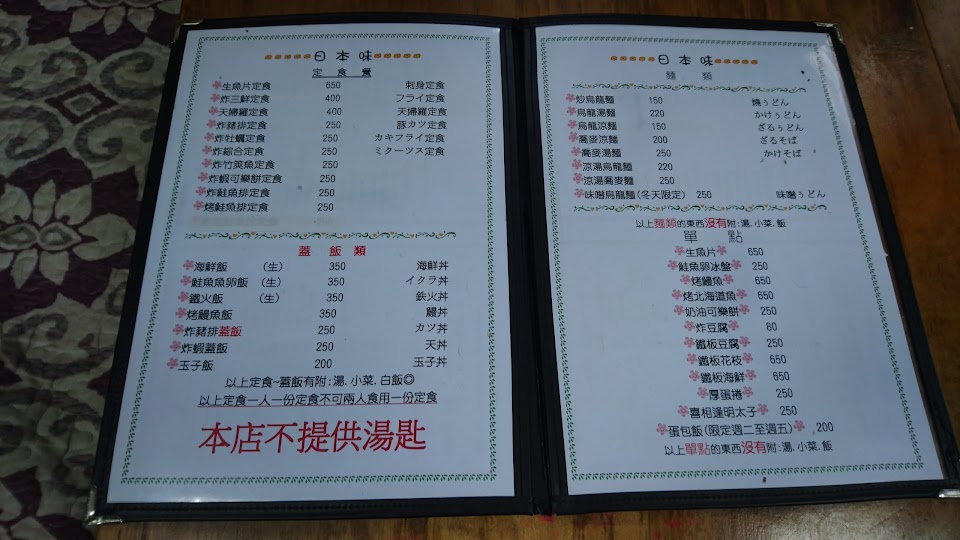 日本味
定食餐
生魚片定食 650 刺身定食
炸三鮮定食 400 フライ定食
天婦羅定食 400 天婦羅定食
炸豬排定食 250 豚カツ定食
炸牡蠣定食 250 カキフライ定食
炸綜合定食 250 ミクーツス定食
炸竹筴魚定食 250
炸蝦可樂餅定食 250
炸鮭魚排定食 250
烤鮭魚排定食 250
蓋飯類
海鮮飯 (生) 350 海鮮丼
鮭魚魚卵飯 (生) 350 イクラ丼
鐵火飯 (生) 350 鉄火丼
烤鰻魚飯 350 鰻丼
炸豬排蓋飯 250 カツ丼
炸蝦蓋飯 250 天丼
玉子飯 200 玉子丼
以上定食~蓋飯有附:湯.小菜.白飯◎
以上定食一人一份定食不可兩人食用一份定食
本店不提供湯匙
日本味
麵類
炒烏龍麵 150 燒うどん
烏龍湯麵 220 かけうどん
烏龍涼麵 150 ざるうどん
蕎麥涼麵 200 ざるそば
蕎麥湯麵 250 かけそば
涼湯烏龍麵 220
涼湯蕎麥麵 250
味噌烏龍麵(冬天限定) 250 味噌うどん
以上麵類的東西沒有附:湯.小菜.飯
單點
生魚片 650
鮭魚卵冰盤 250
烤鰻魚 650
烤北海道魚 650
奶油可樂餅 250
炸豆腐 80
鐵板豆腐 250
鐵板花枝 650
鐵板海鮮 650
厚蛋捲 250
喜相逢明太子 250
蛋包飯(限定週二至週五) 200
以上單點的東西沒有附:湯.小菜.飯